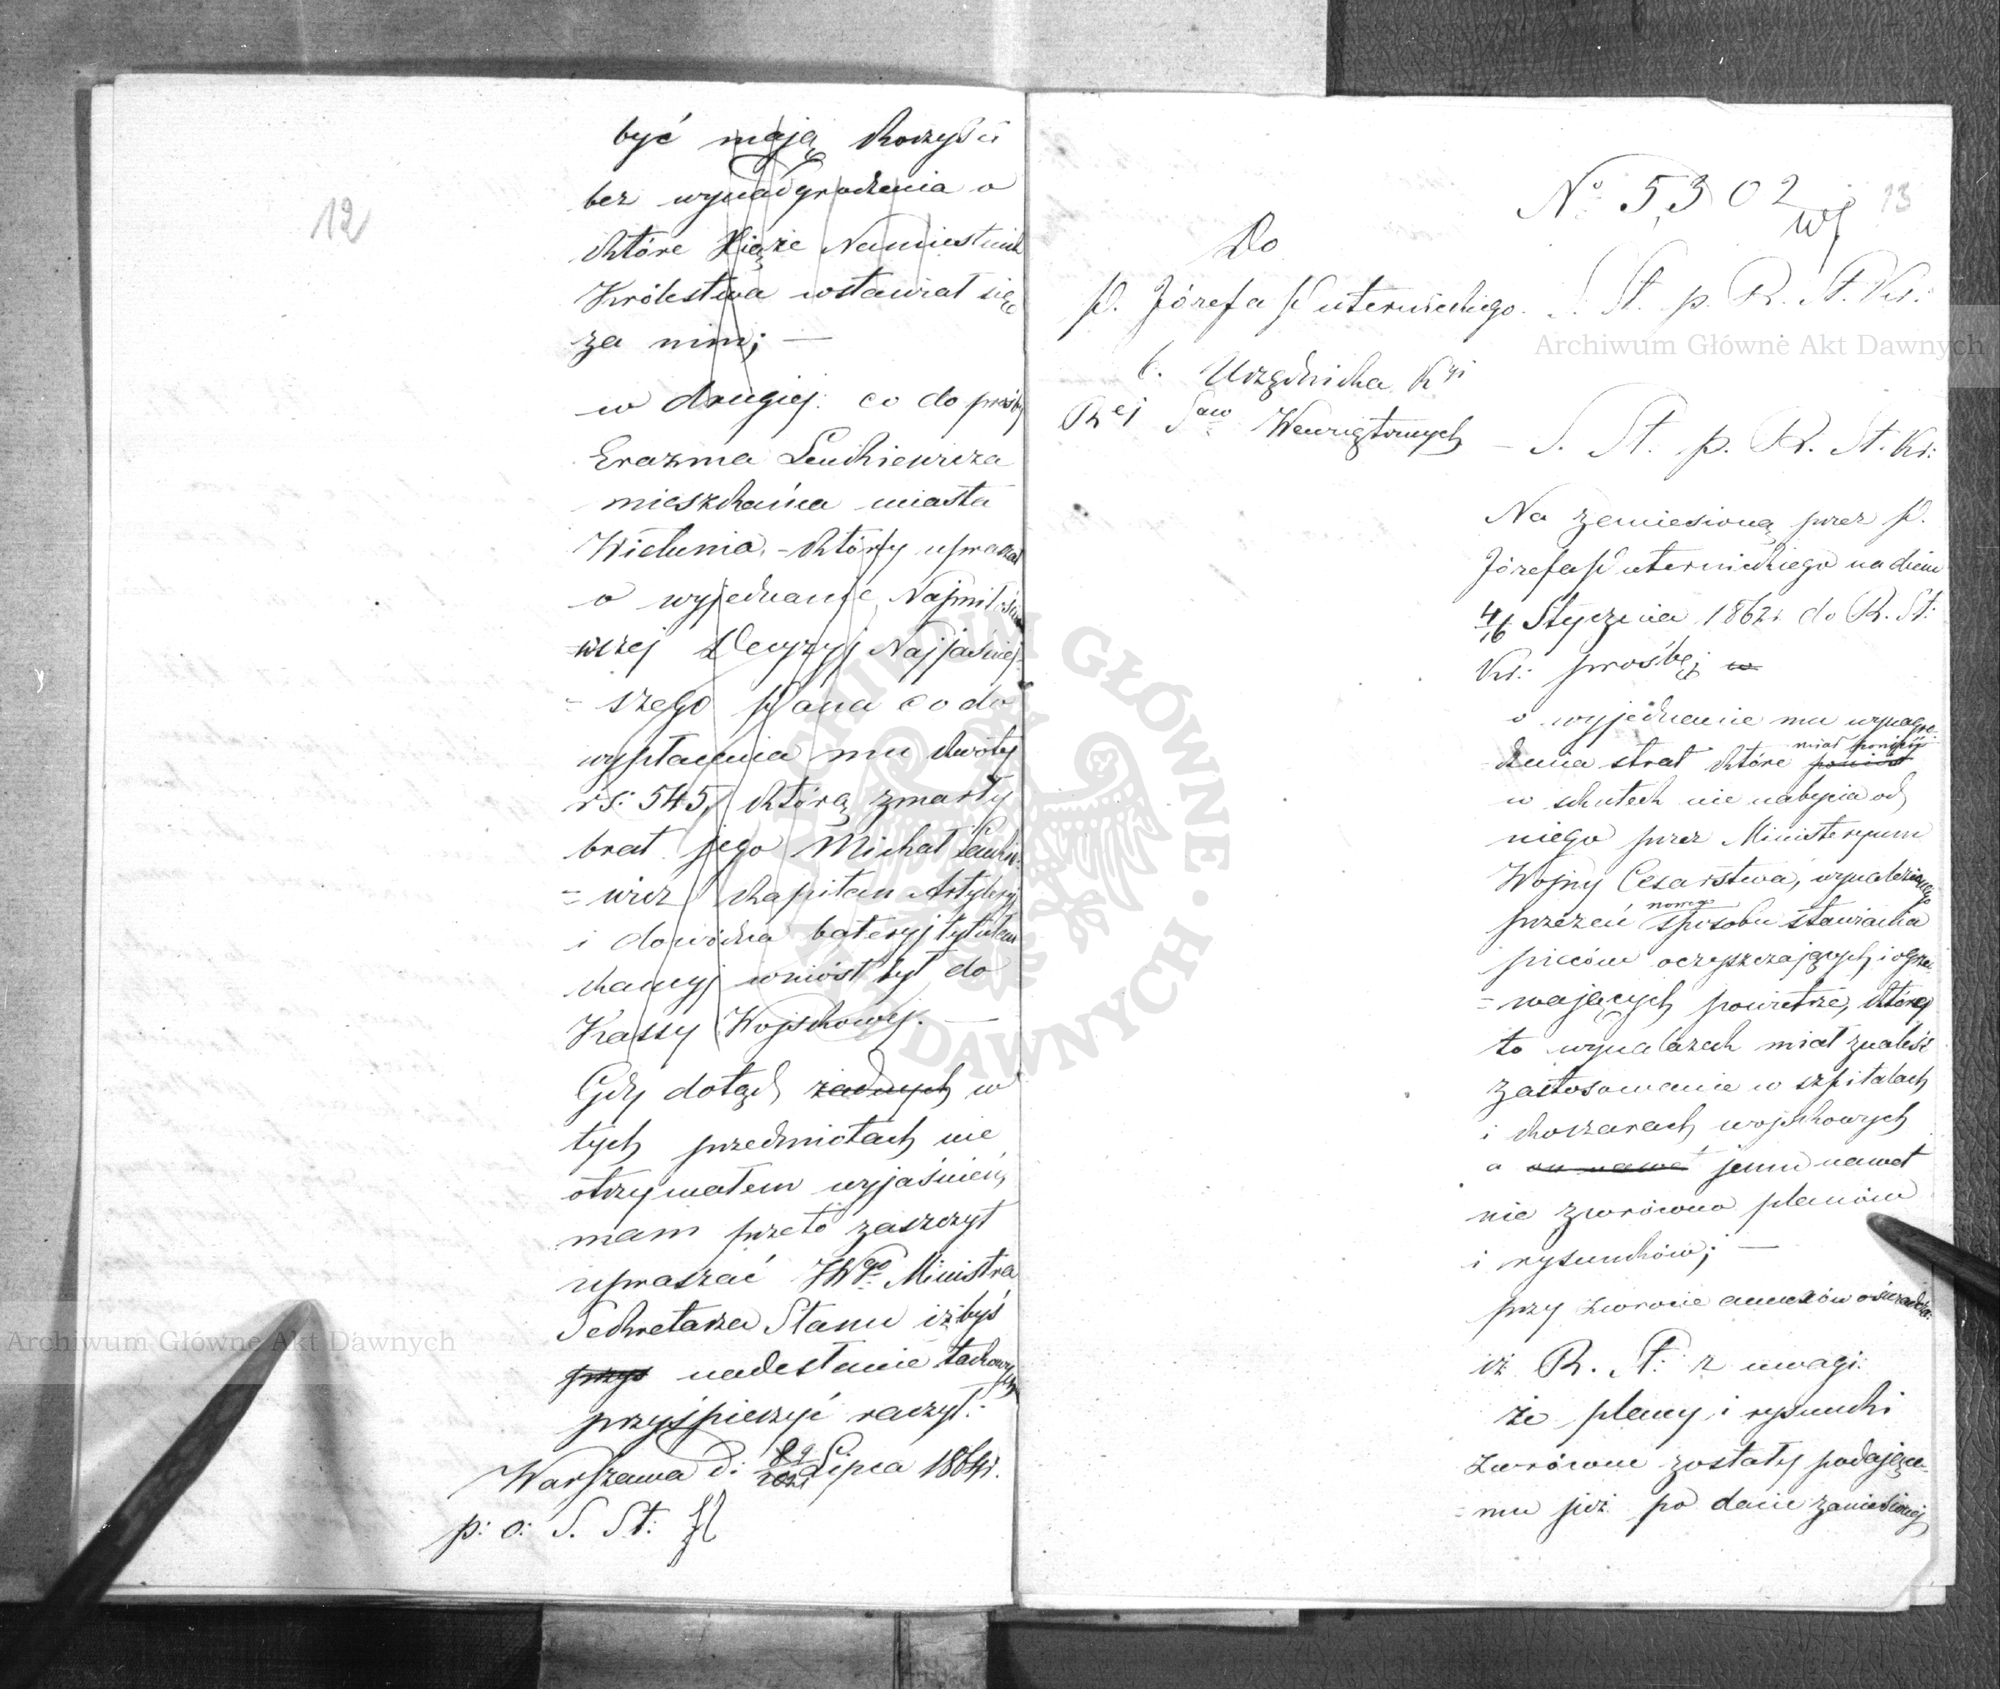 12
być mają korzyści
bez wynadgrodzenia o
które Xiąże Namiestnik
Królestwa wstawiał się
za nim; —
w drugiej: co do prośby
Erazma Lenkiewicza
mieszkańca miasta
Wielunia, - który upraszał
o wyjednanie Najmiłości=
wszej Decyzyi Najjaśniej=
= szego Pana co do
wypłacenia mu kwoty
rs: 545, którą zmarły
brat jego Michał Lenkie=
= wicz Kapitan Artyleryi
i dowódca bateryj tytułem
kaucyj wniósł był do
Kassy Wojskowej. —
Gdy dotąd żadnych w
tych przedmiotach nie
otrzymałem wyjaśnień,
mam przeto zaszczyt
upraszać JWgo Ministra
Sekretarza Stanu iżbyś
przys nadesłanie takowych
przyśpieszyć raczył.-
Warszawa d: Lipca 1864r.
p: o: S. St:
No 5,302 13
Do
P. Józefa Puternickiego. S. St. p. R. St. Kr:
b. Urzędnika Kyi
Rej Saw Wewnętrznych — S. St. p. R. St. Kr:
Na zaniesioną przez P.
Józefa Puternickiego na dniu
4/16 Stycznia 1862r. do R. St:
Kr: prośbę; w
o wyjednanie mu wynagro=
miał ponieść
dzenia strat które poniósł
w skutek nie nabycia od
niego przez Ministeryum
Wojny Cesarstwa, wynalezionego
nowego
przezeń sposobu stawiania
pieców oczyszczających i ogrze=
= wających powietrze, który
to wynalazek miał znaleść
zastosowanie w szpitalach
i koszarach wojskowych
a on nawet jemu nawet
nie zwrócono planów
i rysunków; —
przy zwrocie annexów oświadcza:
iż R. St: z uwagi:
że plany i rysunki
zwrócone zostały podające=
= mu już po dacie zaniesionej
Archiwum Główne Akt Dawnych
Archiwum Główne Akt Dawnych
ARCHIWUM GŁÓWNE AKT DAWNYCH